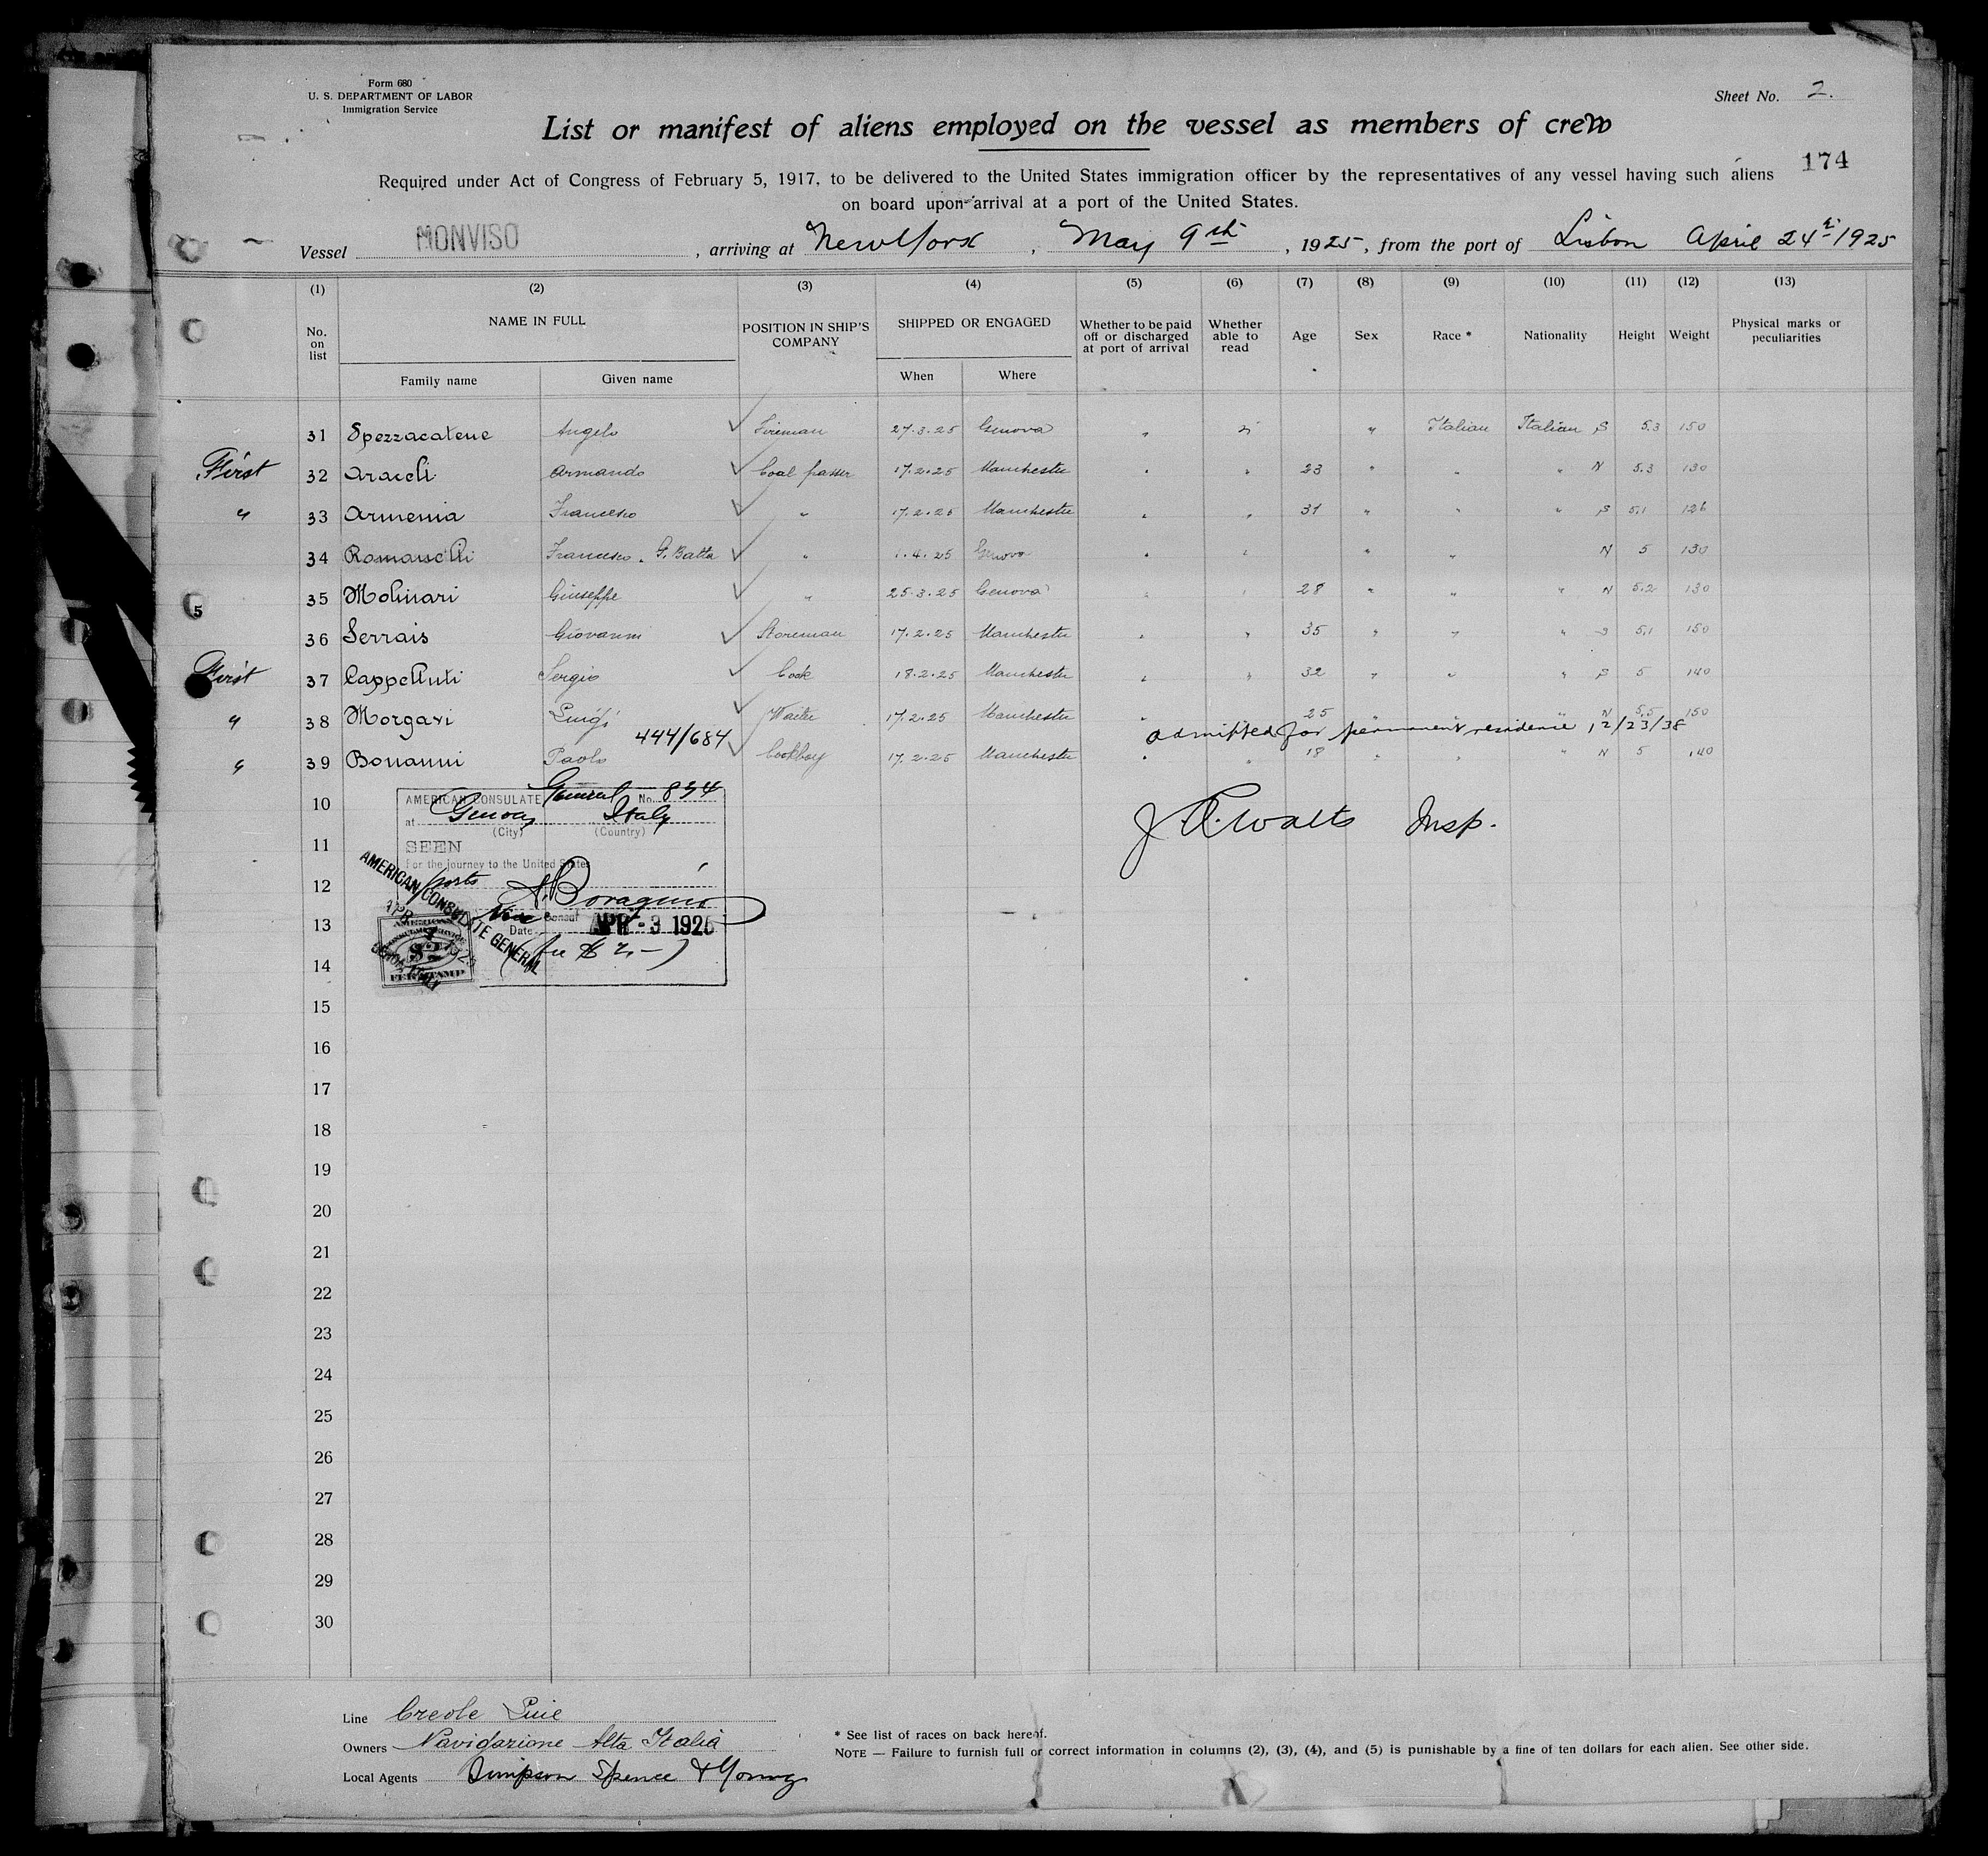 Form 680
U. S. DEPARTMENT OF LABOR
Immigration Service
Sheet No. 2.
List or manifest of aliens employed on the vessel as members of crew
174
Required under Act of Congress of February 5, 1917, to be delivered to the United States immigration officer by the representatives of any vessel having such aliens
on board upon arrival at a port of the United States.
Vessel MONVISO , arriving at New York , May 9th , 1925, from the port of Lisbon April 24th 1925
(1) (2) (3) (4) (5) (6) (7) (8) (9) (10) (11) (12) (13)
No. on list NAME IN FULL POSITION IN SHIP'S COMPANY SHIPPED OR ENGAGED Whether to be paid off or discharged at port of arrival Whether able to read Age Sex Race * Nationality Height Weight Physical marks or peculiarities
Family name Given name When Where
31 Spezzacatene Angelo Fireman 27.3.25 Genova " " Italian Italian S 5.3 150
First 32 Araceli Armando Coal passer 17.2.25 Manchester " " 23 " " " N 5.3 130
" 33 Armenia Francesco " 17.2.25 Manchester " " 31 " " " S 5.1 126
34 Romanelli Francesco . G. Batta " 1.4.25 Genova " " " " N 5 130
35 Molinari Giuseppe " 25.3.25 Genova " " 28 " " " N 5.2 130
36 Serrais Giovanni Storeman 17.2.25 Manchester " " 35 " " " S 5.1 150
First 37 Cappelluti Sergio Cook 18.2.25 Manchester " " 32 " " " S 5 140
" 38 Morgavi Luigi Waiter 17.2.25 Manchester " 25 " " " N 5.5 150
444/684 admitted for permanent residence 12/23/38
" 39 Bonanni Paolo Cookboy 17.2.25 Manchester " " 18 " " " N 5 140
10
AMERICAN CONSULATE General No. 834
at Genoa Italy
(City) (Country)
J. C. Walts Insp.
11
SEEN
For the journey to the United States
12
ports
A. Boragino
13
Vice Consul
Date APR - 3 1925
(fee $ 2.—)
AMERICAN CONSULATE GENERAL
AMERICAN
CONSULAR SERVICE
$2
FEE STAMP
14
15
16
17
18
19
20
21
22
23
24
25
26
27
28
29
30
5
Line Creole Line
Owners Navigazione Alta Italia
Local Agents Simpson Spence & Young
* See list of races on back hereof.
NOTE — Failure to furnish full or correct information in columns (2), (3), (4), and (5) is punishable by a fine of ten dollars for each alien. See other side.